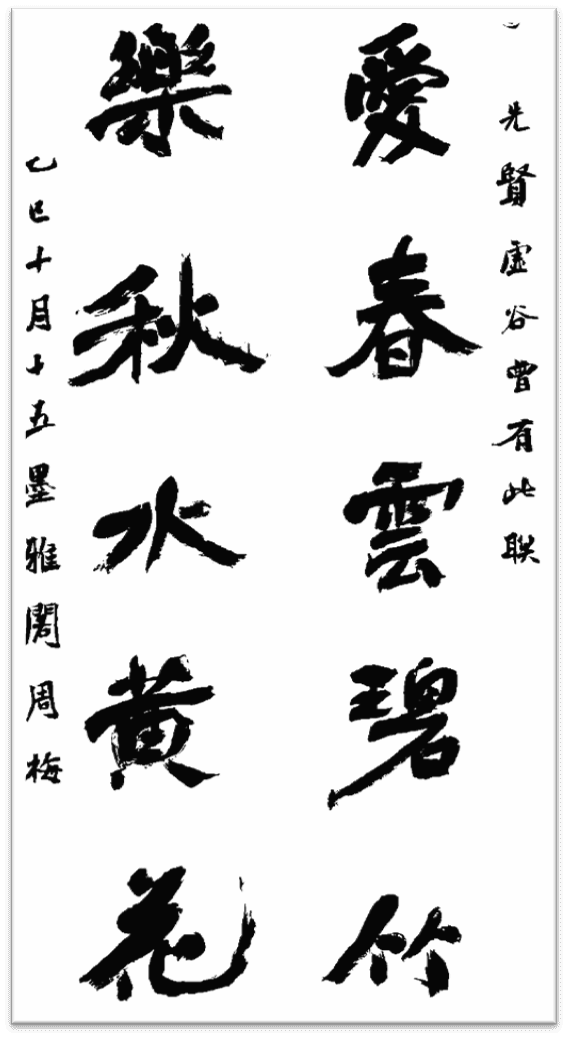 先賢虛谷曾有此联
愛春雲碧竹
樂秋水黄花
乙巳十月十五墨雅閣周梅